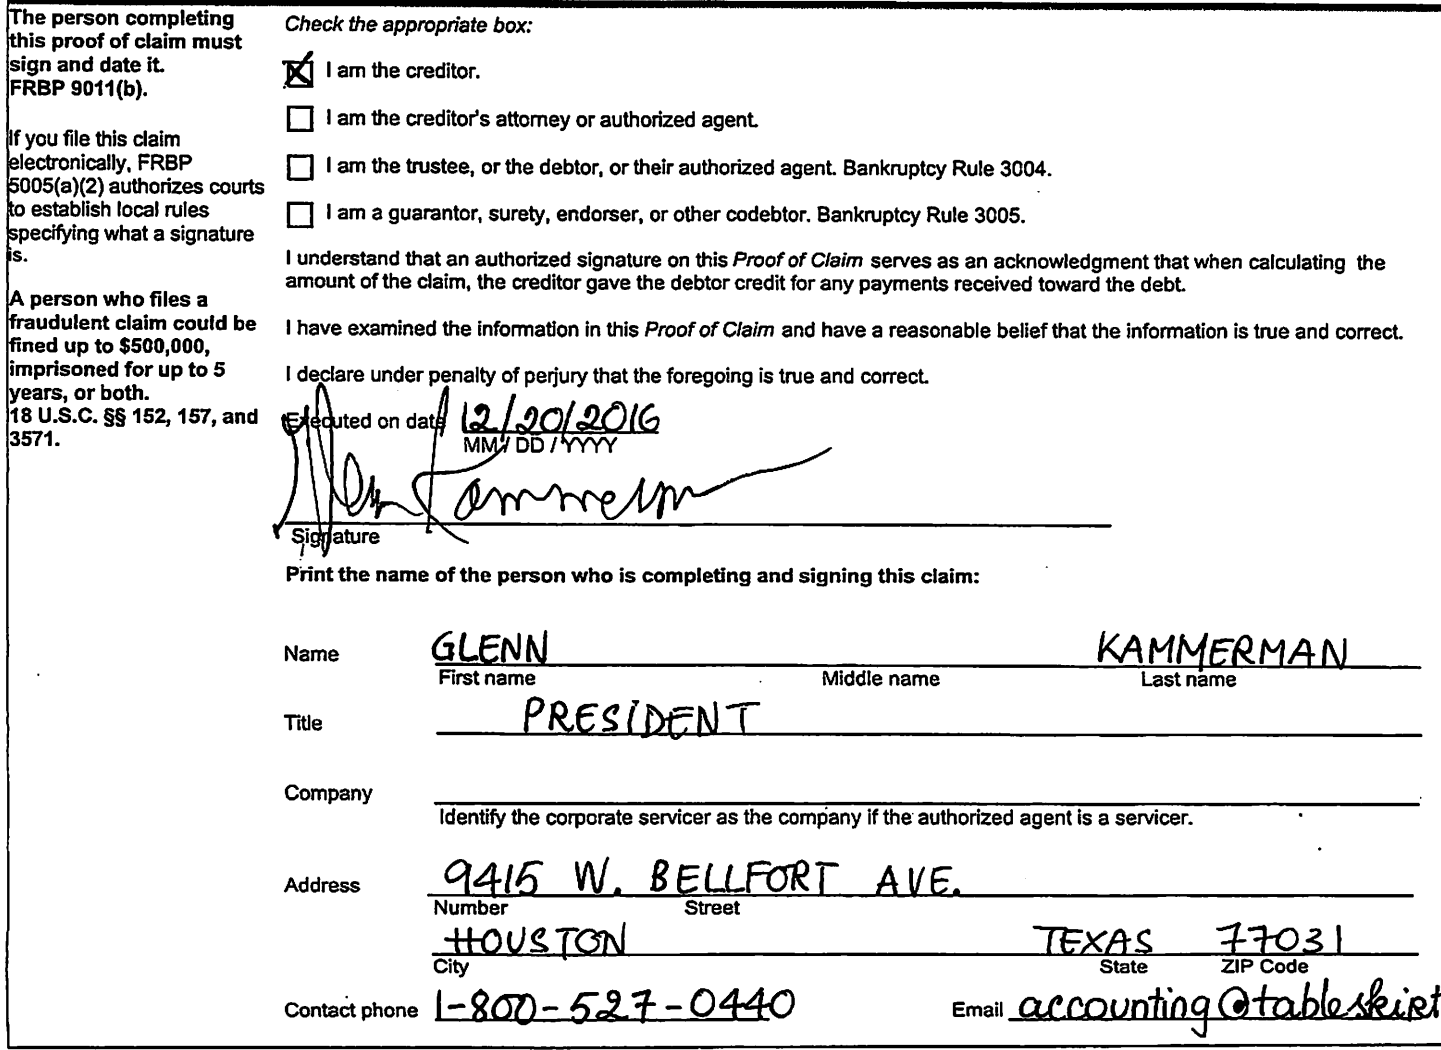 The person completing
this proof of claim must
sign and date it.
FRBP 9011(b).
If you file this claim
electronically, FRBP
5005(a)(2) authorizes courts
to establish local rules
specifying what a signature
is.
A person who files a
fraudulent claim could be
fined up to $500,000,
imprisoned for up to 5
years, or both.
18 U.S.C. §§ 152, 157, and
3571.
Check the appropriate box:
I am the creditor.
I am the creditor's attorney or authorized agent.
I am the trustee, or the debtor, or their authorized agent. Bankruptcy Rule 3004.
I am a guarantor, surety, endorser, or other codebtor. Bankruptcy Rule 3005.
I understand that an authorized signature on this Proof of Claim serves as an acknowledgment that when calculating the
amount of the claim, the creditor gave the debtor credit for any payments received toward the debt.
I have examined the information in this Proof of Claim and have a reasonable belief that the information is true and correct.
I declare under penalty of perjury that the foregoing is true and correct.
Executed on date 12/20/2016
MM / DD / YYYY
Glenn Kammerman
Signature
Print the name of the person who is completing and signing this claim:
Name GLENN KAMMERMAN
First name Middle name Last name
Title PRESIDENT
Company
Identify the corporate servicer as the company if the authorized agent is a servicer.
Address 9415 W. BELLFORT AVE.
Number Street
HOUSTON TEXAS 77031
City State ZIP Code
Contact phone 1-800-527-0440 Email accounting@tableskirt